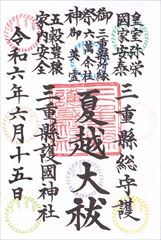 皇室弥栄
國家安泰
三重縣総守護
御祭神
六萬余柱
御英霊
夏越大祓
五穀豊穣
家内安全
三重縣護國神社
令和六年六月十五日